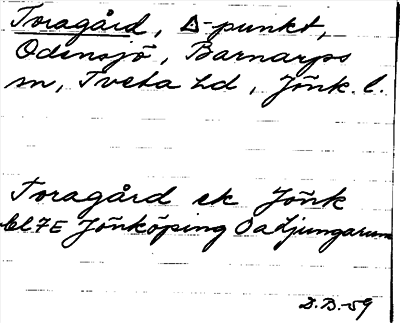 Toragård, ∆-punkt,
Odensjö, Barnarps
sn, Tveta hd, Jönk. l.
Toragård ek Jönk
bl 7E Jönköping Sa Ljungarum
D.B. -59